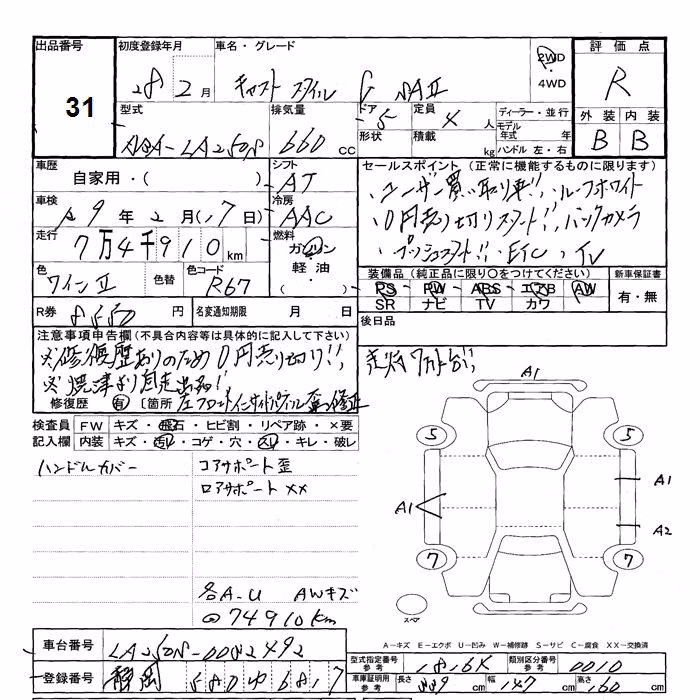 出品番号 初度登録年月 車名・グレード 評価点
31 28 2月 キャスト スタイル G SAⅡ 2WD 4WD R
型式 排気量 ドア 定員 ディーラー・並行 外装 内装
DBA-LA250S 660cc 5 4人 モデル年式 年 B B
形状 積載 kg ハンドル 左・右
車歴 シフト セールスポイント (正常に機能するものに限ります)
自家用・( ) AT ・ユーザー買い取り車!!、ルーフホワイト
車検 冷房
R9年2月(17日) AAC ・0円売り切りスタート!!、バックカメラ
走行 燃料
7万4千910km ガソリン ・プッシュスタート!!、ETC、TV
軽油・( )
色 色替 色コード 装備品 (純正品に限り○をつけてください) 新車保証書
ワインⅡ R67 PS・PW・ABS・エアB AW 有・無
SR ナビ TV カワ
R券 8550円 名変通知期限 月 日 後日品
注意事項申告欄(不具合内容等は具体的に記入して下さい)
※修復歴ありのため0円売り切り!!、 走行7万台!!
※焼津より自走出品!!
修復歴 有 〔箇所 左フロントインサイドパネル 修正
検査員 FW キズ・飛石・ヒビ割・リペア跡・×要
記入欄 内装 キズ・汚レ・コゲ・穴・スレ・キレ・破レ
ハンドルカバー コアサポート歪
ロアサポート××
A1
5 5
A1 A1
A2
7 7
各A-U AWキズ
@74910km
スペア
A-キズ E-エクボ U-凹み W-補修跡 S-サビ C-腐食 XX-交換済
車台番号 LA250S-0082492 型式指定番号 参考 18164 類別区分番号 参考 0010
登録番号 静岡 580 ゆ 6817 車庫証明用 参考 長さ 339cm 幅 147cm 高さ 160cm